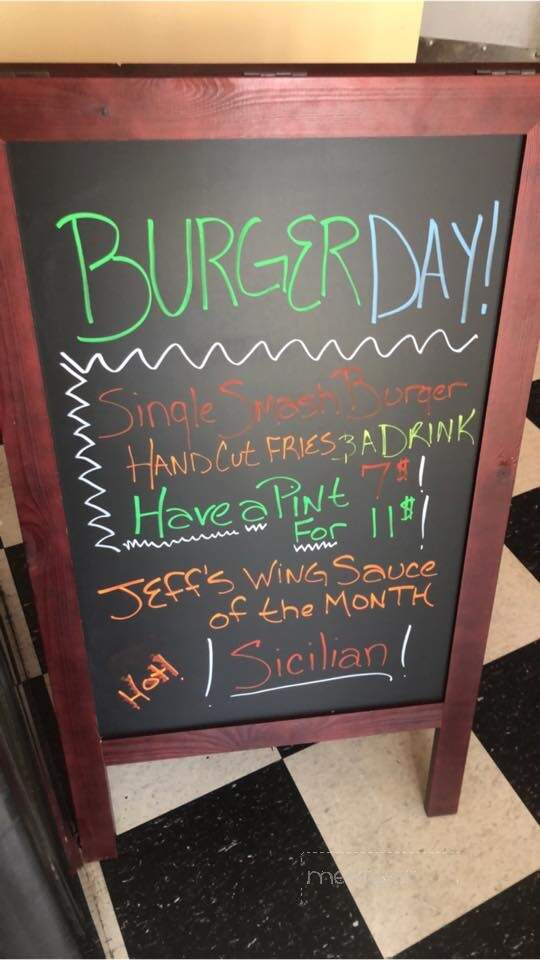 BURGER DAY!
Single Smash Burger
HAND CUT FRIES & A DRINK
7$!
Have a PINt
For 11$!
JEFF'S WING SAuce
of the MONTH
HOt! ! Sicilian!